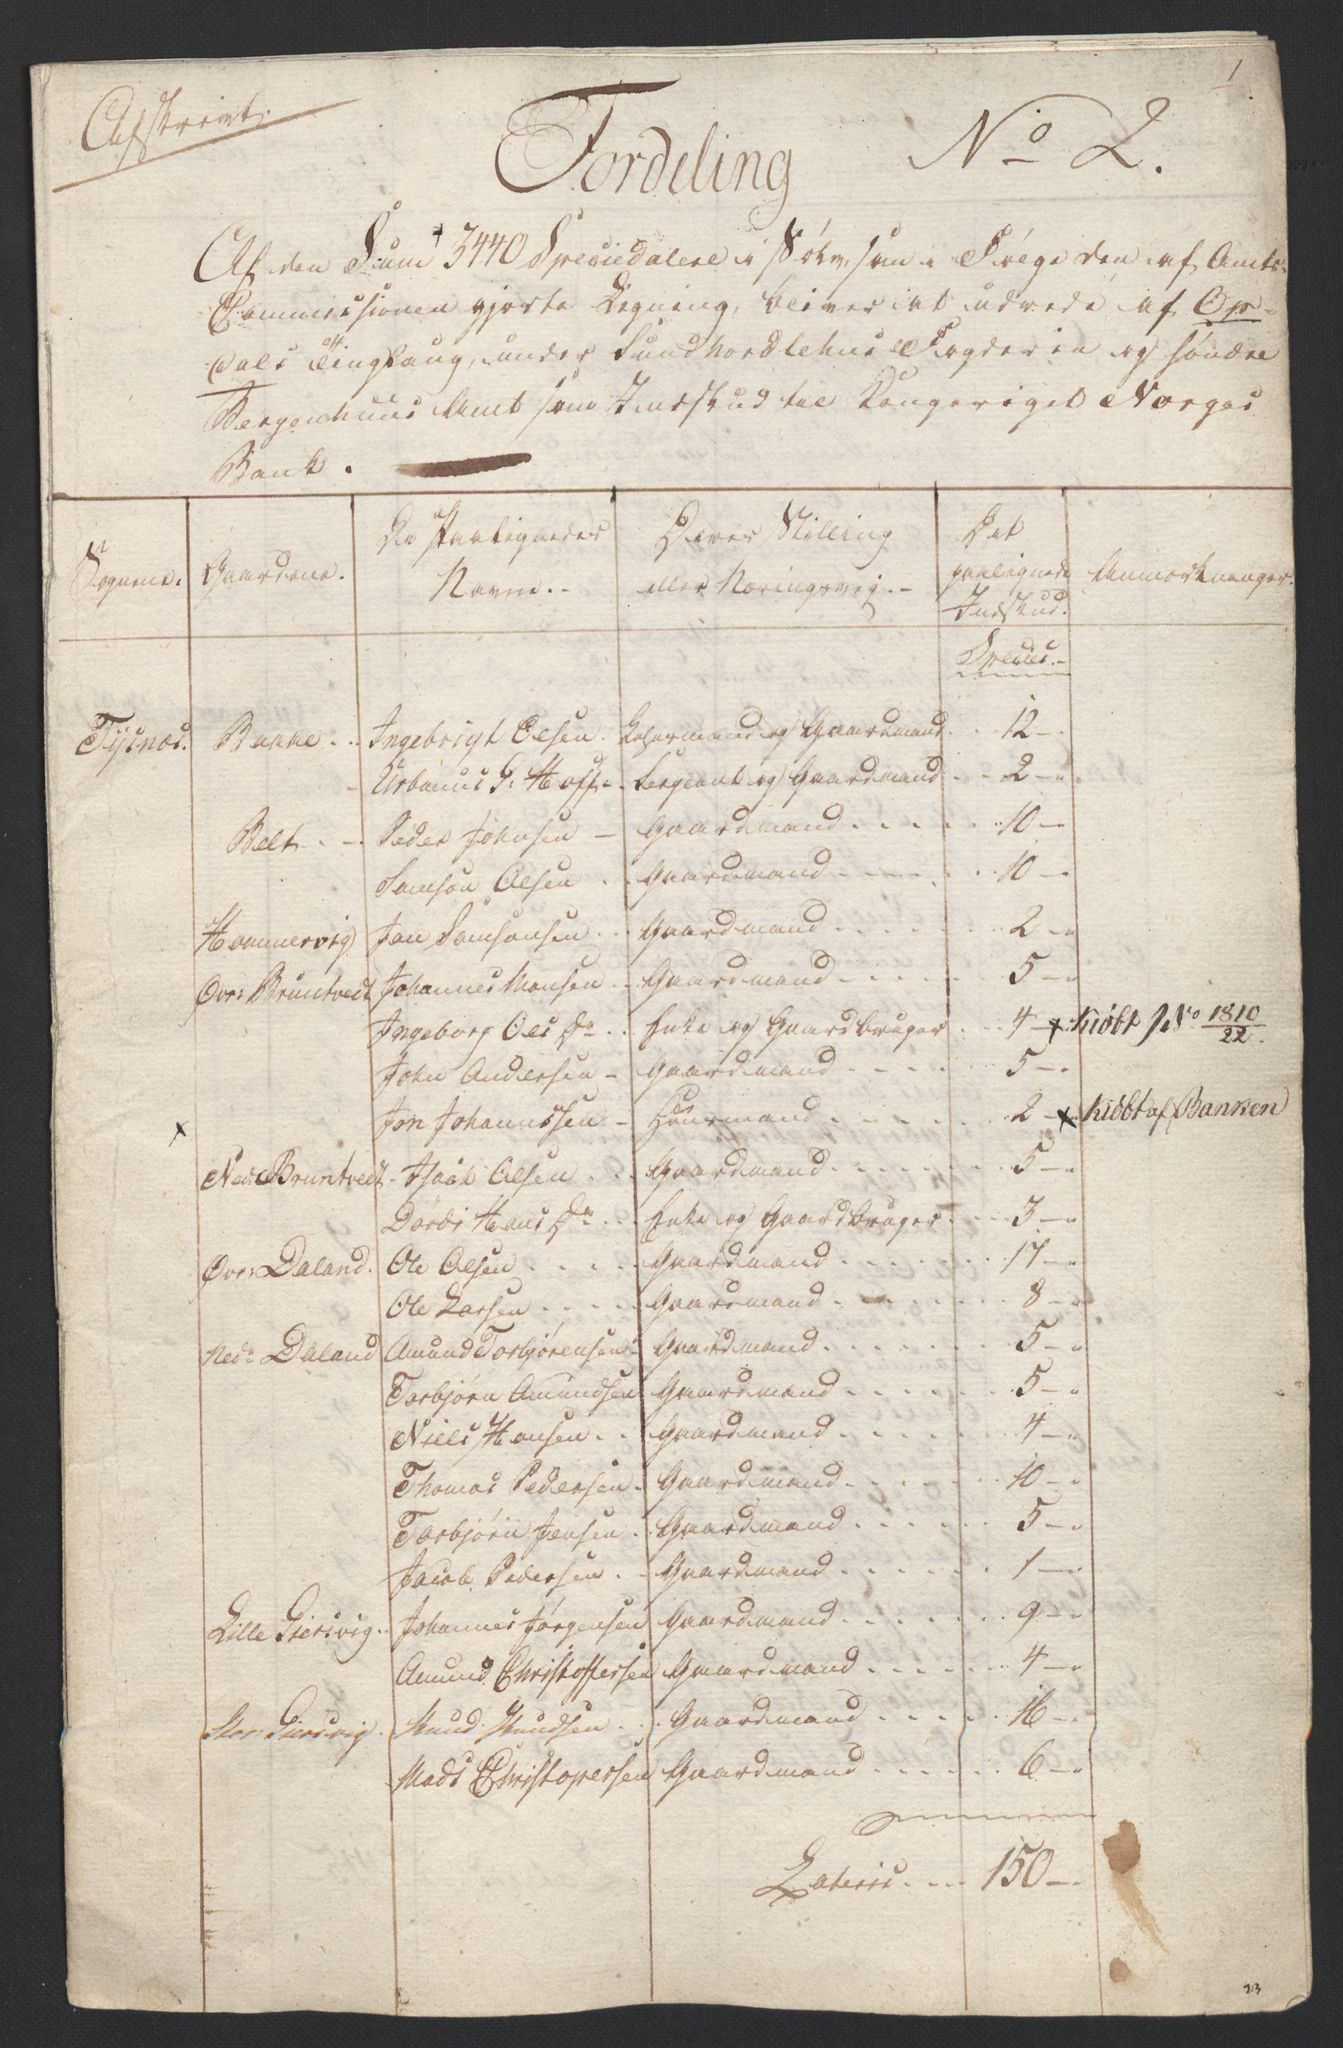 1
Afskrivt.
Fordeling No 2.
Af den Sum 3440 Speciedalere i Sølv, som i Følge den af Amts-
Commissionen gjorte Ligning, bliver at udrede af Op-
dals Tinglaug, under Sundhordlehns Fogderie og søndre
Bergenhuus Amt som Indskud til Kongeriget Norges
Bank.
Sognene. Gaardene. De Paalignedes Navne.- Deres Stilling eller Næringsvej.- Det paalignede Indskud. Anmærkninger.
Species.-
Tysnæs. Bakke . . Ingebrigt Olsen. Lehnsmand og Gaardmand . . 12 -
Urbanus G: Hoff - Sergeant og Gaardmand . . 2 -
Belt . - Peder Johnsen - Gaardmand . . . . 10 -
Samson Olsen . . Gaardmand . . . . 10 -
Hammervig Jon Samsonsen . . Gaardmand . . . . 2 -
Øvre Bruntvedt Johannes Monsen . . Gaardmand . . . . 5 -
Ingeborg Ols Dr . . Enke og Gaardbruger . . 4 - x Kiøbt No 1810/22.
John Andersen - Gaardmand . . . . 5 -
x Jon Johannssen - Huusmand . . . . 2 - x Kiøbt af Banken
Ned: Bruntvedt - Isaak Olsen . . . Gaardmand . . . . 5 -
Dordi Hans Dr . . . Enke og Gaardbruger . . . 3 -
Øvre Daland . Ole Olsen . . . . Gaardmand . . . . 17 -
Ole Larsen . . . . Gaardmand . . . . 8 -
Nedr Daland Amund Torbjørensen - Gaardmand . . . . 5 -
Torbjørn Amundsen Gaardmand . . . . 5 -
Niels Hansen . . Gaardmand . . . . 4 -
Thomas Pedersen . Gaardmand . . . . 10 -
Torbjørn Jensen . Gaardmand . . . . 5 -
Jacob Pedersen . . Gaardmand . . . . 1 -
Lille Giersvig . . Johannes Jørgensen Gaardmand . . . . 9 -
Amund Christoffersen Gaardmand . . . . 4 -
Stor: Giersvig . Knud Knudsen . . . Gaardmand . . . . 16 -
Mads Christopersen Gaardmand . . . . 6 -
Lateris . . . 150 -